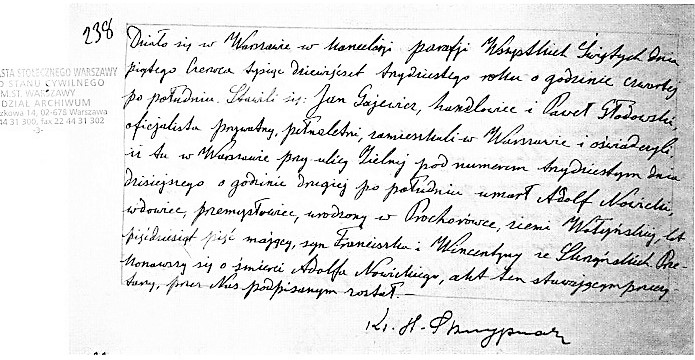 238
Działo się w Warszawie w kancelarji parafji Wszystkich Świętych dnia
piątego Czerwca tysiąc dziewięćset trzydziestego roku o godzinie czwartej
po południu. Stawili się: Jan Gajewicz, handlowiec i Paweł Głodowski,
oficjalista prywatny, pełnoletni, zamieszkali w Warszawie i oświadczyli,
iż tu w Warszawie przy ulicy Zielnej pod numerem trzydziestym dnia
dzisiejszego o godzinie drugiej po południu umarł Adolf Nowicki,
wdowiec, przemysłowiec, urodzony w Prochorowce, ziemi Wołyńskiej, lat
pięćdziesiąt pięć mający, syn Franciszka i Wincentyny ze
konawszy się o śmierci Adolfa Nowickiego, akt ten stawającym przeczy-
tany, przez Nas podpisanym został.
Ks. H.
ASTA STOŁECZNEGO WARSZAWY
D STANU CYWILNEGO
M.ST. WARSZAWY
DZIAŁ ARCHIWUM
zkowa 14, 02-678 Warszawa
44 31 300, fax 22 44 31 302
-3-